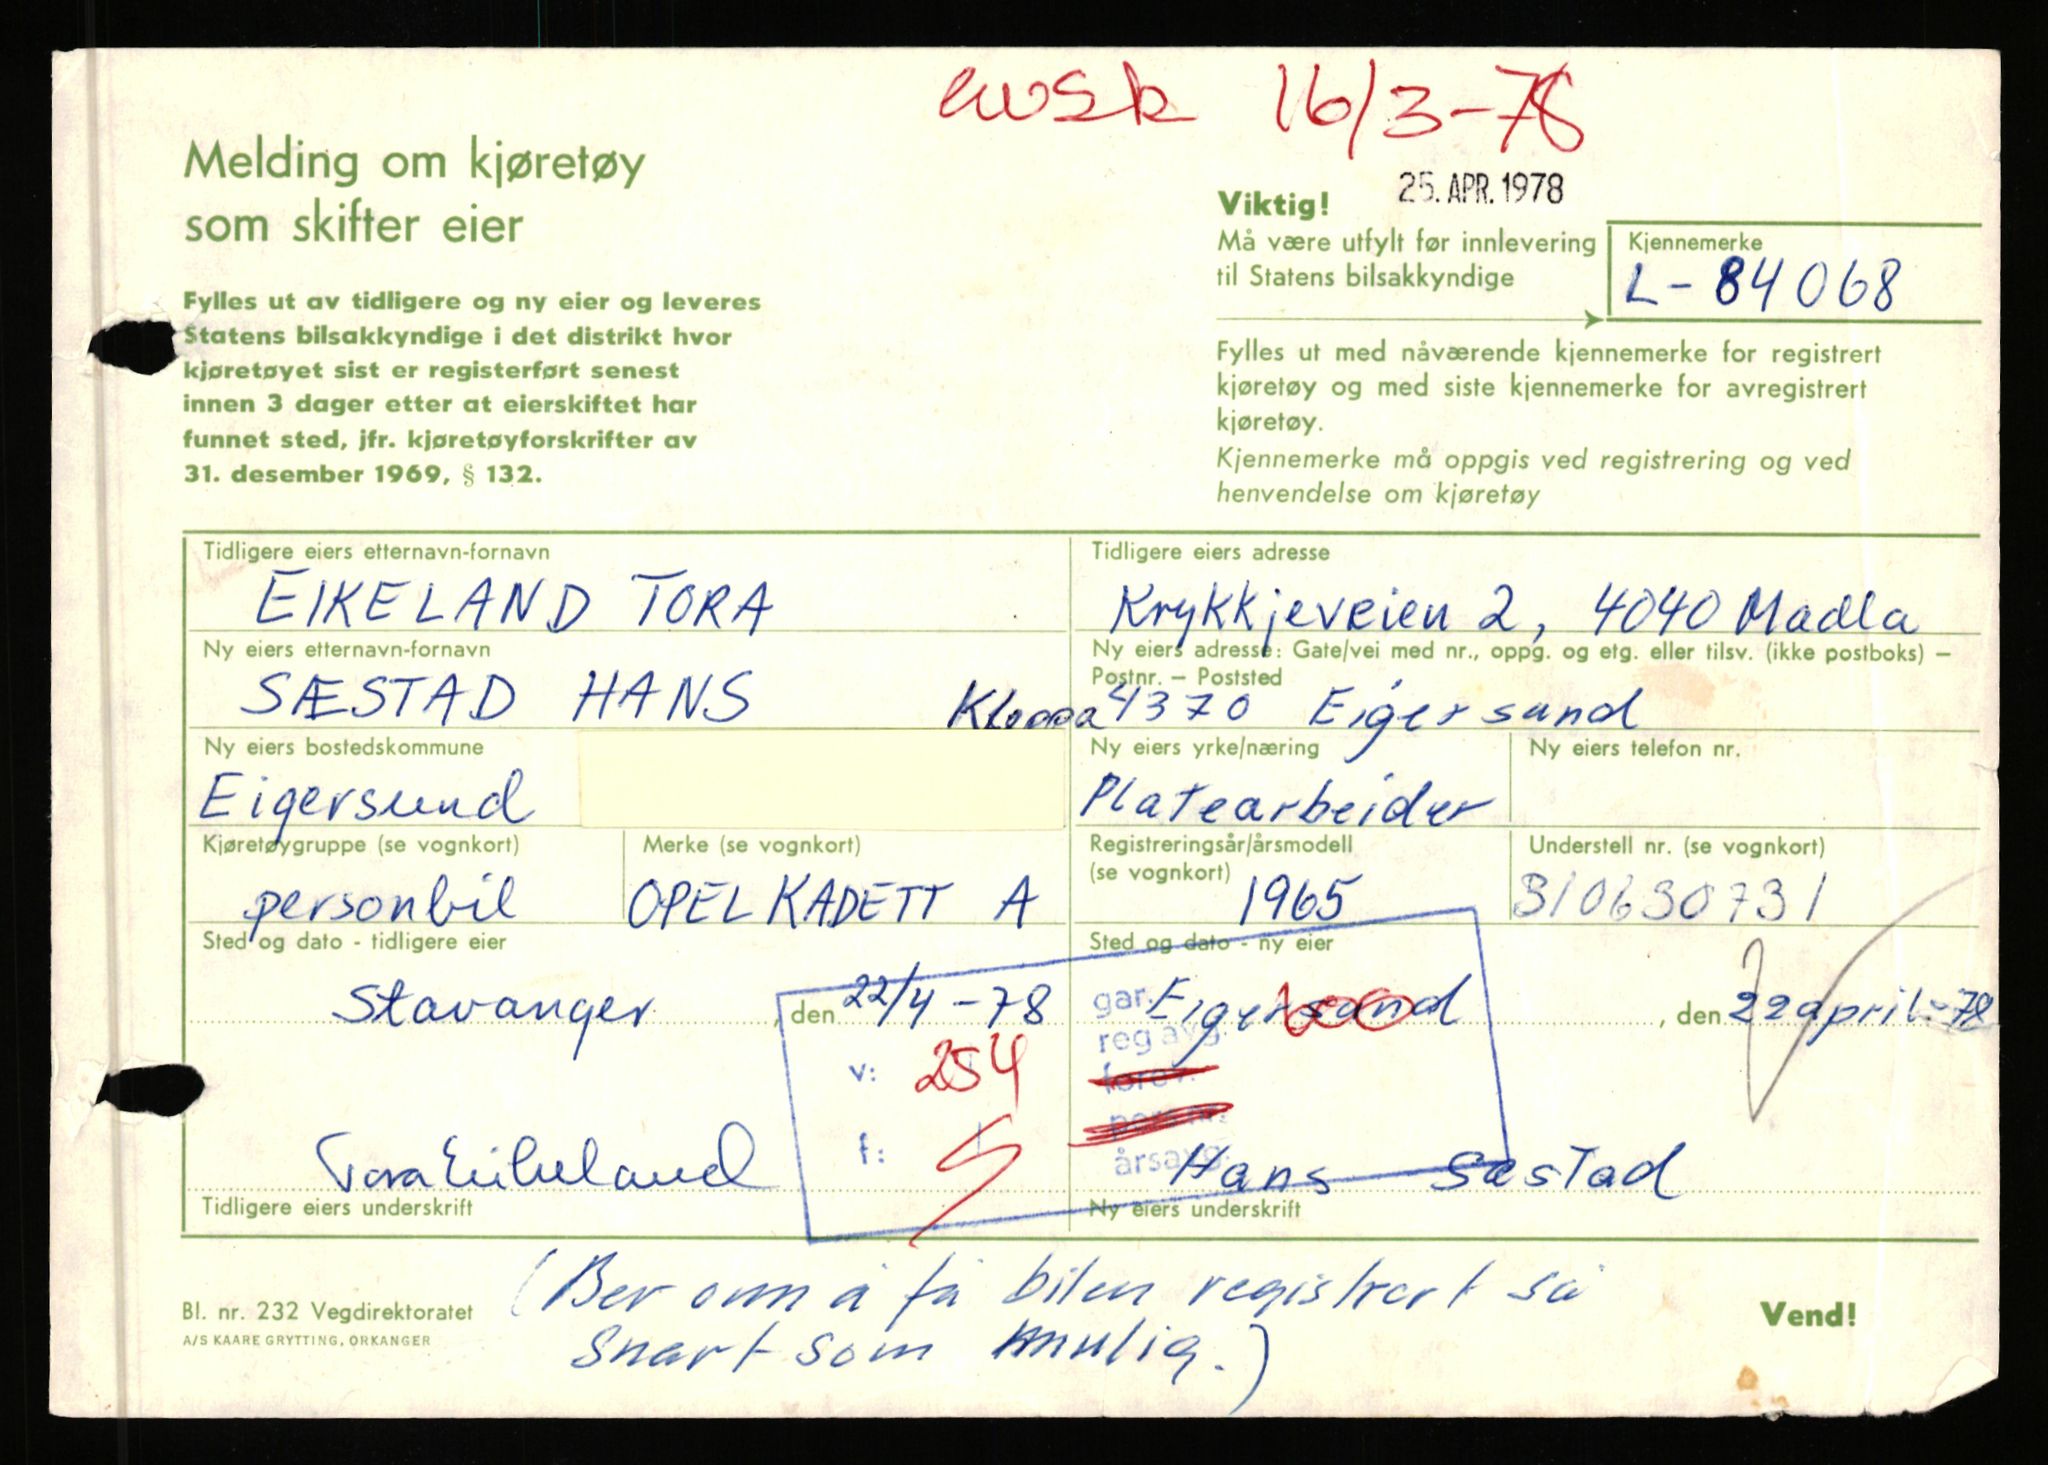 avsk 16/3-78
Melding om kjøretøy
som skifter eier
Fylles ut av tidligere og ny eier og leveres
Statens bilsakkyndige i det distrikt hvor
kjøretøyet sist er registerført senest
innen 3 dager etter at eierskiftet har
funnet sted, jfr. kjøretøyforskrifter av
31. desember 1969, § 132.
25. APR. 1978
Viktig!
Må være utfylt før innlevering
til Statens bilsakkyndige
Kjennemerke
L-84068
Fylles ut med nåværende kjennemerke for registrert
kjøretøy og med siste kjennemerke for avregistrert
kjøretøy.
Kjennemerke må oppgis ved registrering og ved
henvendelse om kjøretøy
Tidligere eiers etternavn-fornavn
EIKELAND TORA
Tidligere eiers adresse
Krykkjeveien 2, 4040 Madla
Ny eiers etternavn-fornavn
SÆSTAD HANS
Ny eiers adresse: Gate/vei med nr., oppg. og etg. eller tilsv. (ikke postboks) –
Postnr. – Poststed
4370 Eigersund
Ny eiers bostedskommune
Eigersund
Ny eiers yrke/næring
Platearbeider
Ny eiers telefon nr.
Kjøretøygruppe (se vognkort)
personbil
Merke (se vognkort)
OPEL KADETT A
Registreringsår/årsmodell
(se vognkort)
1965
Understell nr. (se vognkort)
310630731
Sted og dato - tidligere eier
Stavanger, den 22/4-78
Sted og dato - ny eier
Eigersund, den 22 april-78
gar.
reg avg.
v: 254
f:
årsavg
Tora Eikeland
Tidligere eiers underskrift
Hans Sæstad
Ny eiers underskrift
(Ber om å få bilen registrert så
snart som mulig.)
Bl. nr. 232 Vegdirektoratet
A/S KAARE GRYTTING, ORKANGER
Vend!